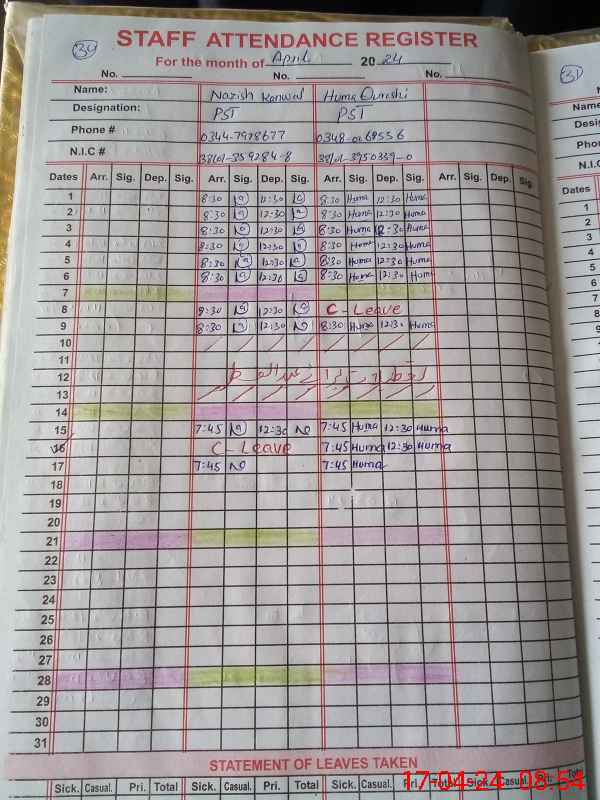 34
STAFF ATTENDANCE REGISTER
For the month of April 2024
No. No. No.
Name: Nazish Kanwal Huma Qureshi
Designation: PST PST
Phone #
N.I.C #
Dates Arr. Sig. Dep. Sig. Arr. Sig. Dep. Sig. Arr. Sig. Dep. Sig. Arr. Sig. Dep. Sig.
1 8:30 12:30 8:30 Huma 12:30 Huma
2 8:30 12:30 8:30 Huma 12:30 Huma
3 8:30 12:30 8:30 Huma 12:30 Huma
4 8:30 12:30 8:30 Huma 12:30 Huma
5 8:30 12:30 8:30 Huma 12:30 Huma
6 8:30 12:30 8:30 Huma 12:30 Huma
7
8 8:30 12:30 C-Leave
9 8:30 12:30 8:30 Huma 12:30 Huma
10
11
12
13
14
15 7:45 12:30 7:45 Huma 12:30 Huma
16 C-Leave 7:45 Huma 12:30 Huma
17 7:45 7:45 Huma
18
19
20
21
22
23
24
25
26
27
28
29
30
31
STATEMENT OF LEAVES TAKEN
Sick. Casual. Pri. Total Sick. Casual. Pri. Total Sick. Casual. Pri. Total Sick. Casual. Pri. Total
17-04-24 08:54
31
No.
Name
Desig
Phon
N.I.C
Dates
1
2
3
4
5
6
7
8
9
10
11
12
13
14
15
16
17
18
19
20
21
22
23
24
25
26
27
28
29
30
31